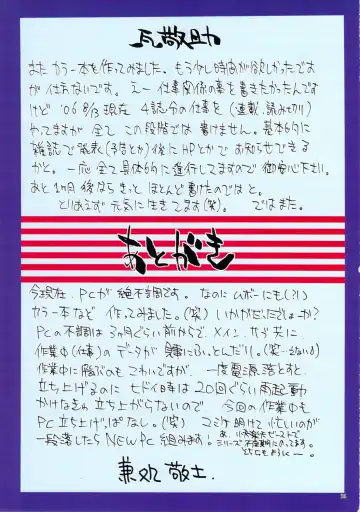 瓦敬助
またカラー本を作ってみました。もう少し時間が欲しかったですが
仕方ないです。えー仕事関係の事を書きたかったんです
けど'06 8/13現在 4誌分の仕事を(連載、読み切り)
やってますが全てこの段階では書けません。基本的に
雑誌で発表(予告とか)後にHPとかでお知らせできる
かと。一応全て具体的に進行してますので御安心下さい。
あと1ヶ月後ならきっとほとんど書けたのではと。
とりあえず元気に生きてます(笑)。ではまた。
あとがき
今現在、PCが絶不調です。なのにムボーにも(?!)
カラー本など作ってみました。(笑)いかがだったでしょーか?
PCの不調は3ヶ月ぐらい前からで、メイン、サブ共に
作業中(仕事)のデータが
作業中に飛ぶのもこわいですが、一度電源落とすと、
立ち上げるのにヒドイ時は20回ぐらい再起動
かけなきゃ立ち上がらないので今回の作業中も
PC立ち上げっぱなし。(笑)コミケ明けて忙しいのが
一段落したらNEW PC組みます!
兼処敬士
36